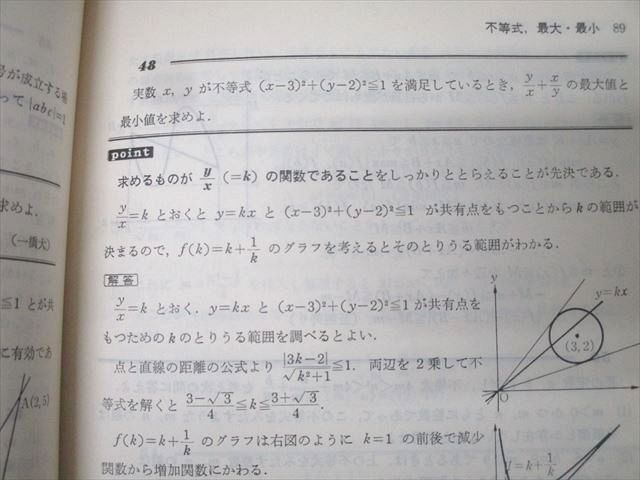 不等式，最大・最小 89
48
実数 x, y が不等式 (x−3)²+(y−2)²≦1 を満足しているとき，y/x+x/y の最大値と
最小値を求めよ．
point
求めるものが y/x (=k) の関数であることをしっかりととらえることが先決である．
y/x=k とおくと y=kx と (x−3)²+(y−2)²≦1 が共有点をもつことからkの範囲が
決まるので，f(k)=k+1/k のグラフを考えるとそのとりうる範囲がわかる．
解答
y/x=k とおく．y=kx と (x−3)²+(y−2)²≦1が共有点を
もつための k のとりうる範囲を調べるとよい．
点と直線の距離の公式より |3k−2|/√k²+1≦1．両辺を2乗して不
等式を解くと 3−√3/4≦k≦3+√3/4
f(k)=k+1/k のグラフは右図のように k=1 の前後で減少
関数から増加関数にかわる．
y
y=kx
(3,2)
O
y
f=k+1/k
号が成立する場
って |abc|=1
求めよ．
(一橋大)
≦1 とが共
に有効であ
A(2,5)